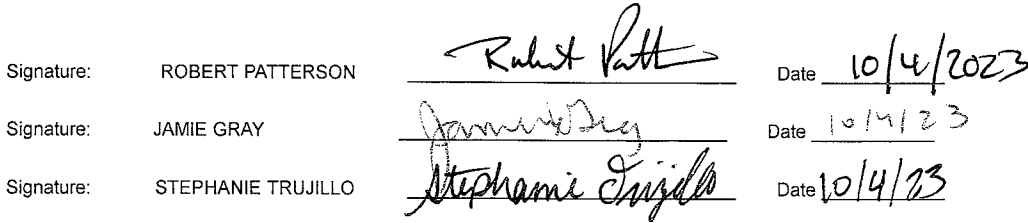 Signature: ROBERT PATTERSON Robert Patt Date 10/4/2023
Signature: JAMIE GRAY Jamie Gray Date 10/4/23
Signature: STEPHANIE TRUJILLO Stephanie Trujillo Date 10/4/23